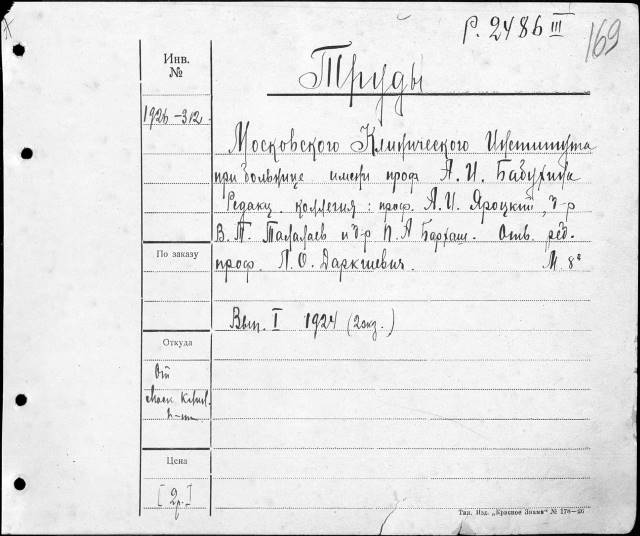 р. 2486 III
169
Инв.
№
Труды
1926-312
Московского Клинического Института
при больнице имени проф. А. И. Бабухина
Редакц. коллегия: проф. А. И. Яроцкий, д-р
В. Т. Талалаев и д-р П. А. Бархаш. Отв. ред.
По заказу
проф. Л. О. Даркшевич. М. 8°
Вып. I 1924 (2 экз.)
Откуда
От
Моск. Клин.
Ин-та
Цена
[2р.]
Тип. Изд. „Красное Знамя" № 176—26